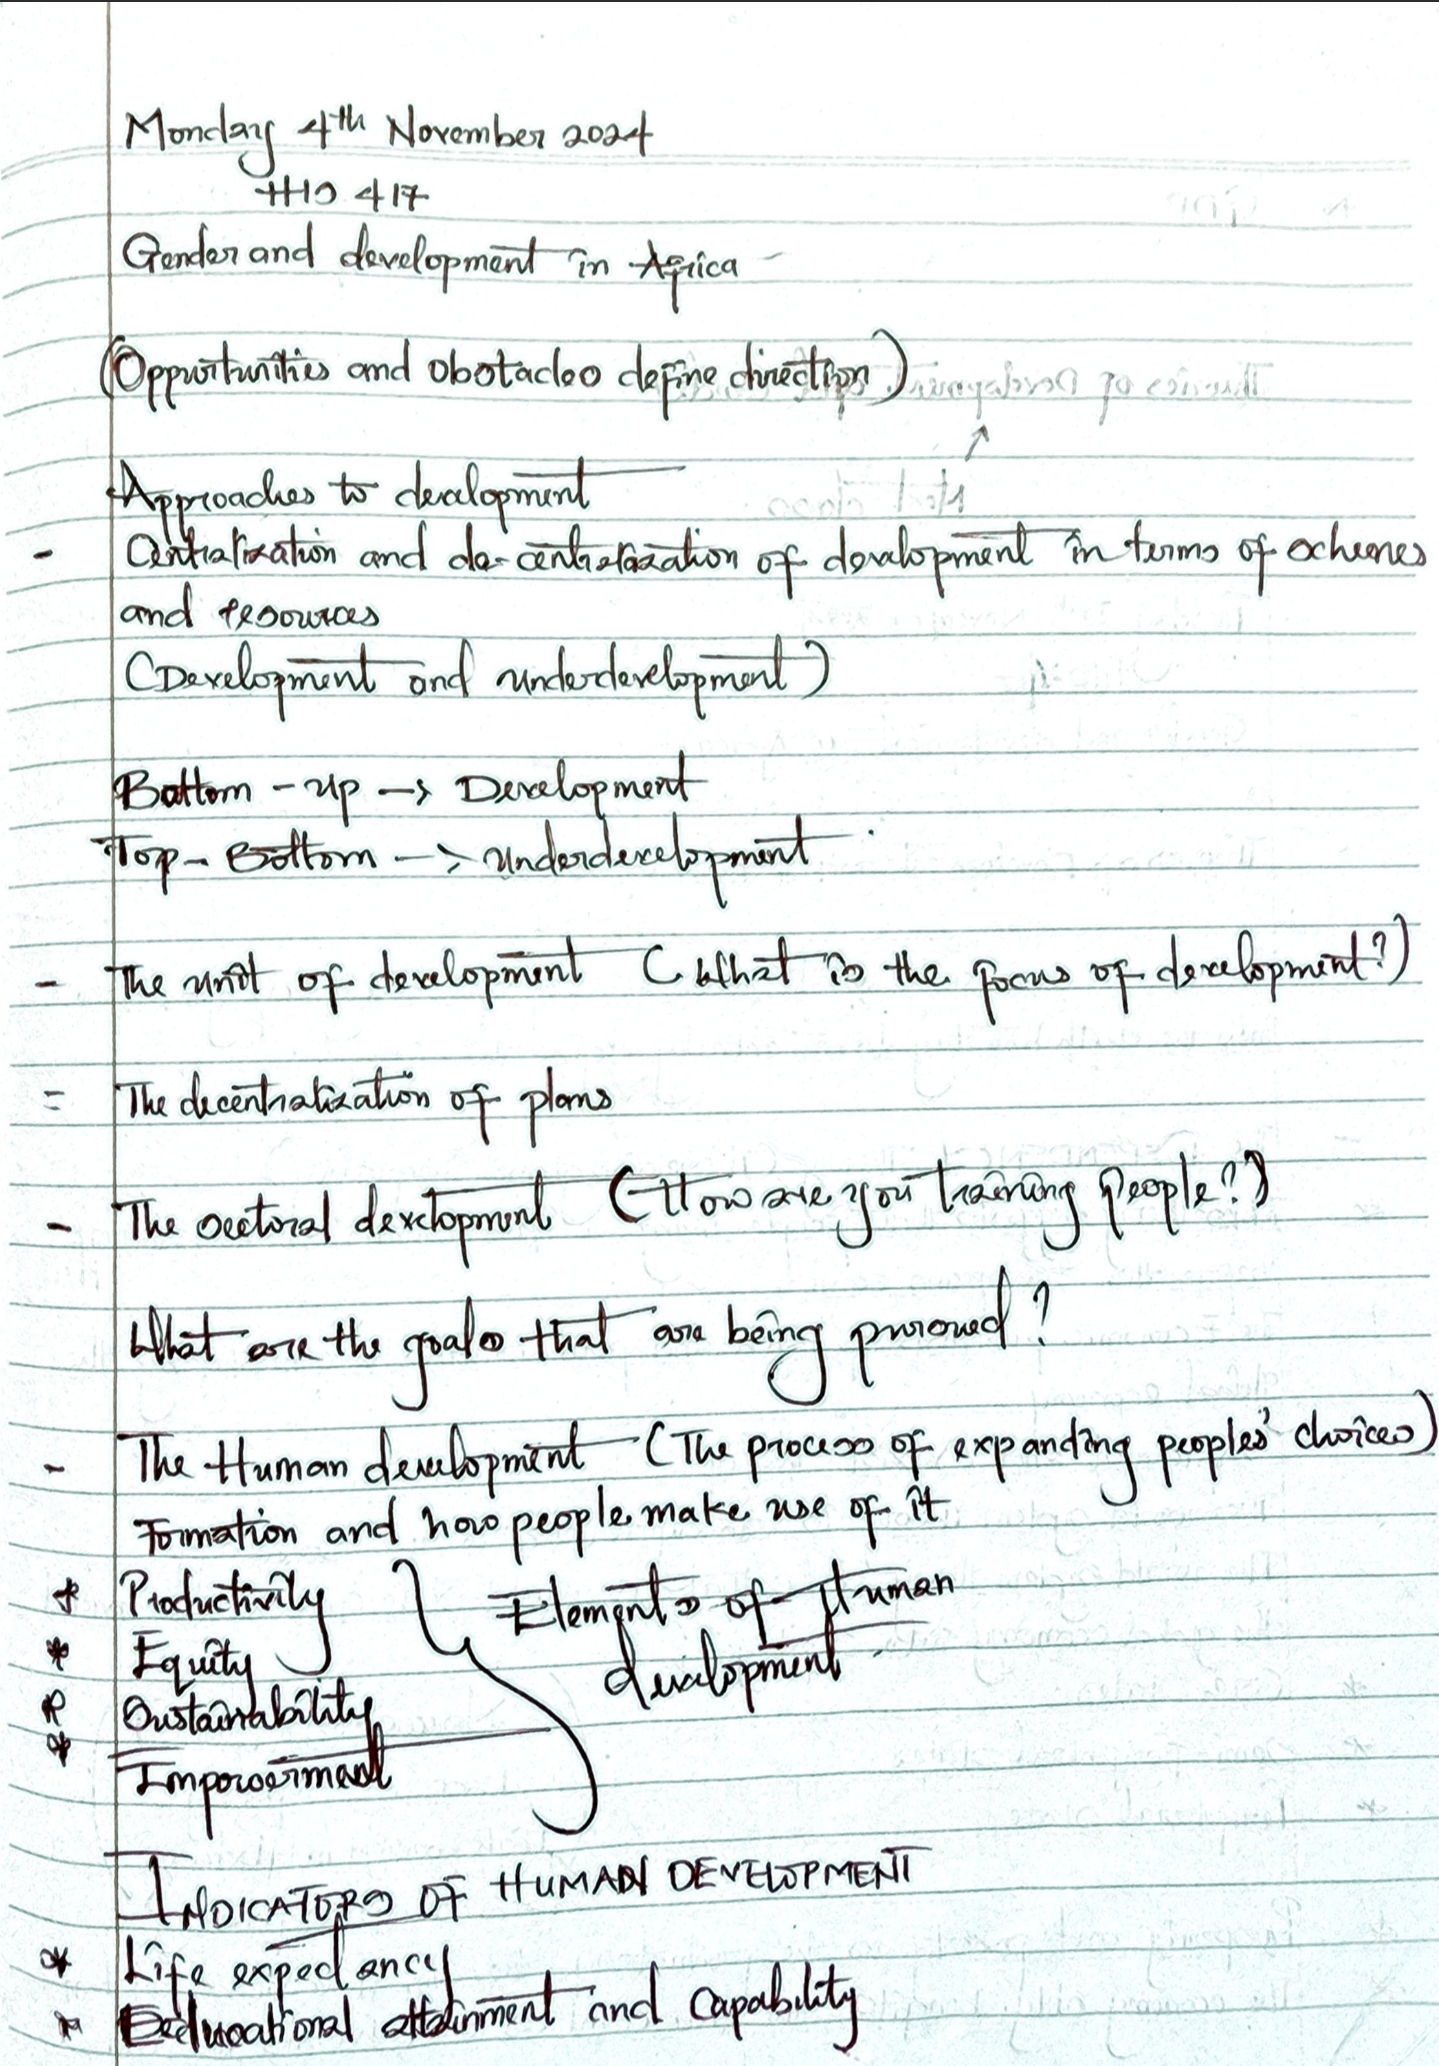 Monday 4th November 2024
HIS 417
Gender and development in Africa
(Opportunities and obstacles define direction)
Approaches to development
- Centralization and de-centralization of development in terms of schemes
and resources
(Development and underdevelopment)
Bottom-up → Development
Top-Bottom → underdevelopment
- The unit of development (What is the focus of development?)
= The decentralization of plans
- The sectoral development (How are you training people?)
What are the goals that are being pursued?
- The Human development (The process of expanding peoples' choices)
Formation and how people make use of it
* Productivity
* Equity
* Sustainability
* Empowerment
Elements of Human
development
INDICATORS OF HUMAN DEVELOPMENT
* Life expectancy
* Educational attainment and capability